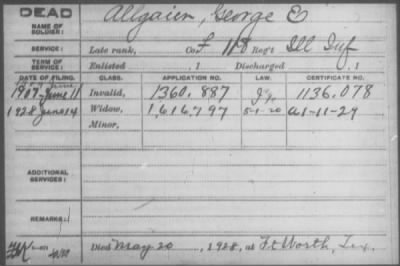 DEAD
NAME OF SOLDIER: Allgaier, George E
SERVICE: Late rank, Co. F 118 Reg't Ill Inf
TERM OF SERVICE: Enlisted , 1 Discharged , 1
DATE OF FILING. CLASS. APPLICATION NO. LAW. CERTIFICATE NO.
1907 June 11 Invalid, 1360.887 1136.078
1928 June 14 Widow, 1,616,797 5-1-20 A1-11-29
Minor,
ADDITIONAL SERVICES:
REMARKS:
Died May 20, 1928, at Ft Worth, Tex.